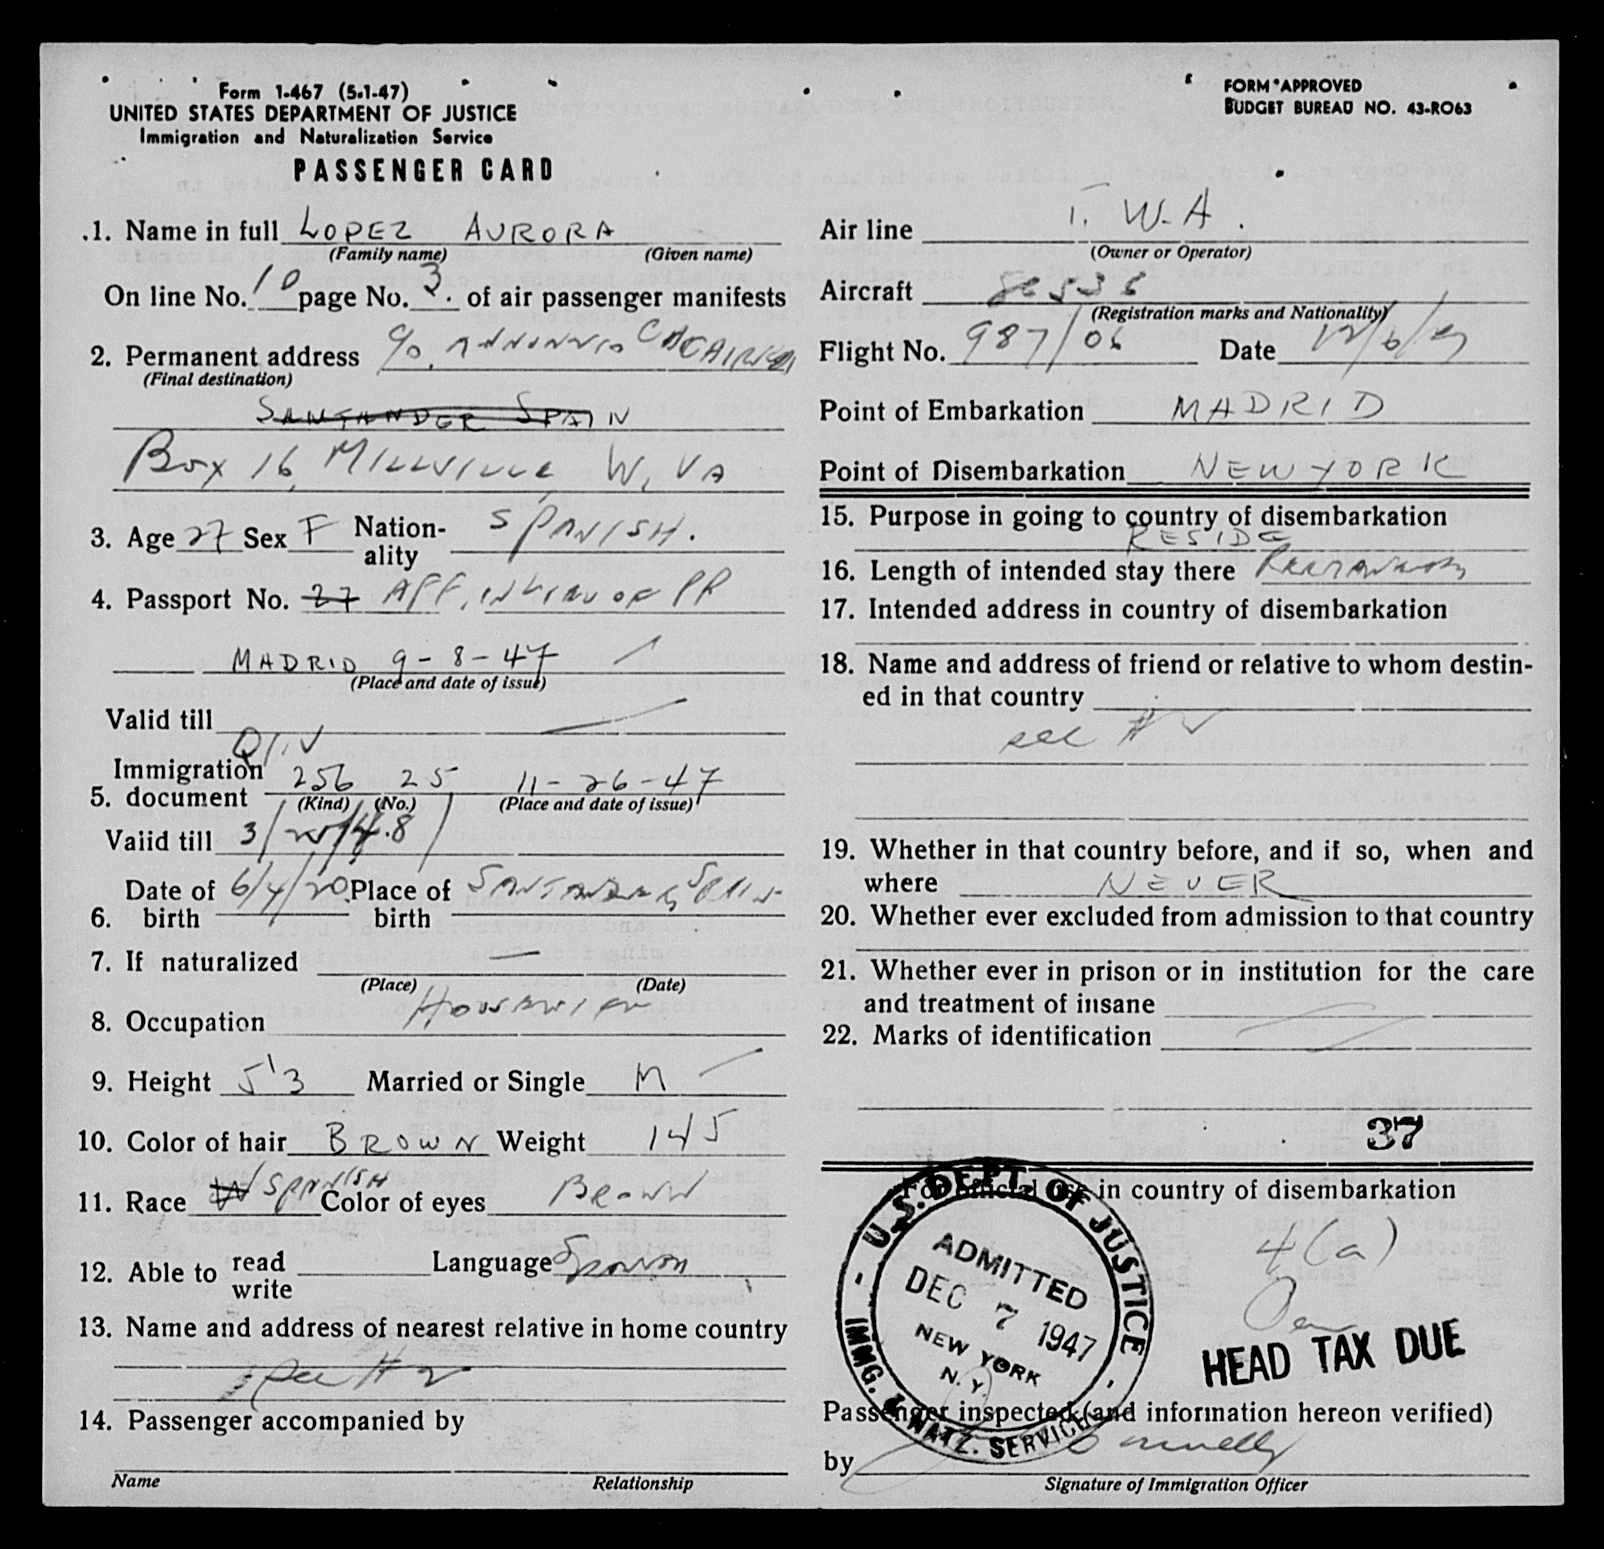 Form 1-467 (5-1-47)
UNITED STATES DEPARTMENT OF JUSTICE
Immigration and Naturalization Service
PASSENGER CARD
FORM APPROVED
BUDGET BUREAU NO. 43-RO63
1. Name in full LOPEZ AURORA
(Family name) (Given name)
On line No. 10 page No. 3. of air passenger manifests
2. Permanent address c/o
(Final destination)
SANTANDER SPAIN
Box 16, MILLVILLE W, VA
3. Age 27 Sex F Nation-
ality SPANISH.
4. Passport No. 27 AFF, IN LIEU OF PP
MADRID 9-8-47
(Place and date of issue)
Valid till
QIV
Immigration
5. document 256 25 11-26-47
(Kind) (No.) (Place and date of issue)
Valid till 3/25/48
Date of 6/4/20 Place of SANTANDER, SPAIN
6. birth birth
7. If naturalized —
(Place) (Date)
8. Occupation HOUSEWIFE
9. Height 5'3 Married or Single M
10. Color of hair BROWN Weight 145
11. Race W SPANISH Color of eyes BROWN
12. Able to read
write Language Spanish
13. Name and address of nearest relative in home country
see #2
14. Passenger accompanied by
Name Relationship
Air line T. W. A.
(Owner or Operator)
Aircraft 86536
(Registration marks and Nationality)
Flight No. 987/06 Date 12/6/47
Point of Embarkation MADRID
Point of Disembarkation NEW YORK
15. Purpose in going to country of disembarkation
RESIDE
16. Length of intended stay there
17. Intended address in country of disembarkation
18. Name and address of friend or relative to whom destin-
ed in that country
see #2
19. Whether in that country before, and if so, when and
where NEVER
20. Whether ever excluded from admission to that country
21. Whether ever in prison or in institution for the care
and treatment of insane
22. Marks of identification
37
For official use in country of disembarkation
U.S. DEPT. OF JUSTICE
ADMITTED
DEC 7 1947
NEW YORK
N.Y.
IMMG. & NATZ. SERVICE
4(a)
HEAD TAX DUE
Passenger inspected (and information hereon verified)
by
Signature of Immigration Officer